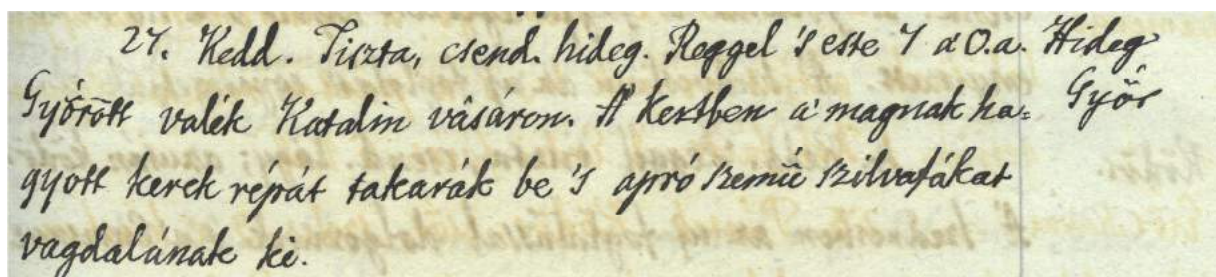 27. Kedd. Tiszta, csend. hideg. Reggel 's este 7 a' 0.a. Hideg
Győrött valék Katalin vásáron. A' kertben a' magnak ha= Győr
gyott kerek répát takarák be 's apró szemű szilvafákat
vagdalának ki.